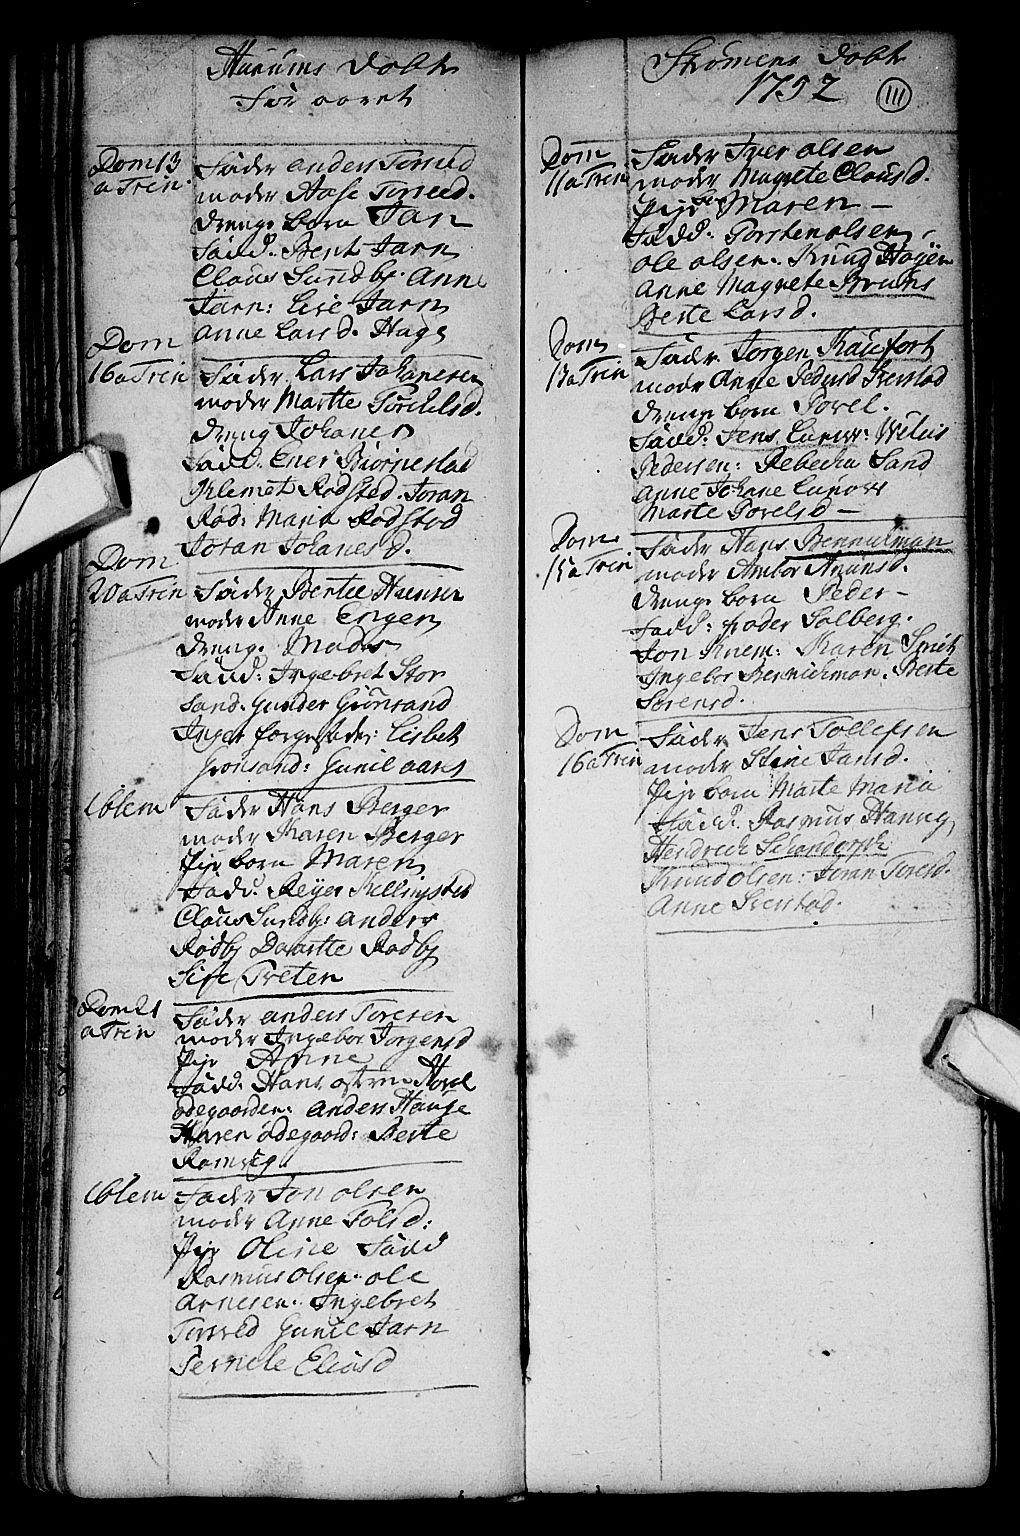 Hurums Døbt
for aaret
Dom 13
a Trin.
Fader Anders Torsted
moder Aase Torsted.
drenge barn Jan
Fadd. Bent Jarn
Claus Sundby. Anne
Jarn: Lise Jarn
Anne Larsd. Hage
Dom
16 a Trin
Fader Lars Johanesen
moder Martte Torchelsd.
dreng Johanes
Fadd. Ener Biørnestad
Klemet Rødsted. Joran
Rød: Maria Rødstød
Joran Johanesd.
Dom
20 a Trin
Fader Bertel Hansen
moder Anne Engen
dreng. Mads
Fadd: Ingebret Stor
sand. Gunder Grønsand
Inger Lisbet
Gronsand: Gunil Aares
Eblem
Fader Hans Berger
moder Karen Berger
Pige barn Maren
Fadd. Reyer Kellingsted
Claus Sundby: Anders
Rødby Daartte Rødby
Sise Treten
Dom 21
a Trin
Fader Anders Toresen
moder Ingebor Jorgensd
Pige Anne
Fadd: Hans Høvel
ødegaarden: Anders Hauge
Karen ødegaard: Berte
Ramvig
Eblem
Fader Jon Olsen
moder Anne Tolsd:
Pige Oline Fadd
Rasmus Olsen: Ole
Arnesen. Ingebret
Torsved Gunil Jarn
Pernele Eliasd
Strømens Døbt
1752
111
Dom
11 a Trin
Fader Iver Olsen
moder Magrete Clausd.
Pige Maren –
Fadd. Torsten Olsen,
Ole Olsen. Knud Høyen
Anne Magrete Bruuns
Berte Larsd.
Dom
13 a Trin
Fader Jorgen Kaüefort
moder Anne Pedersd Sverstad
drenge barn Povel.
Fadd: Jens Lunow: Wilus
Pedersen: Rebecha Sand
Anne Johane Lunows
Marte Povelsd –
Dom
15 a Trin
Fader Hans Bennichman
moder Ambor Amunsd.
drenge barn Peder –
Fadd: Peder Solberg.
Jon Knem: Karen Smit
Ingebor Bennichman. Berte
Sørensd.
Dom
16 a Trin
Fader Jens Tollefsen
moder Stine Jansd.
Pige barn Marte Maria
Fadd: Rasmus Hannig
Hendrich Schandorph
Knud Olsen: Toresd.
Anne Sverstad.